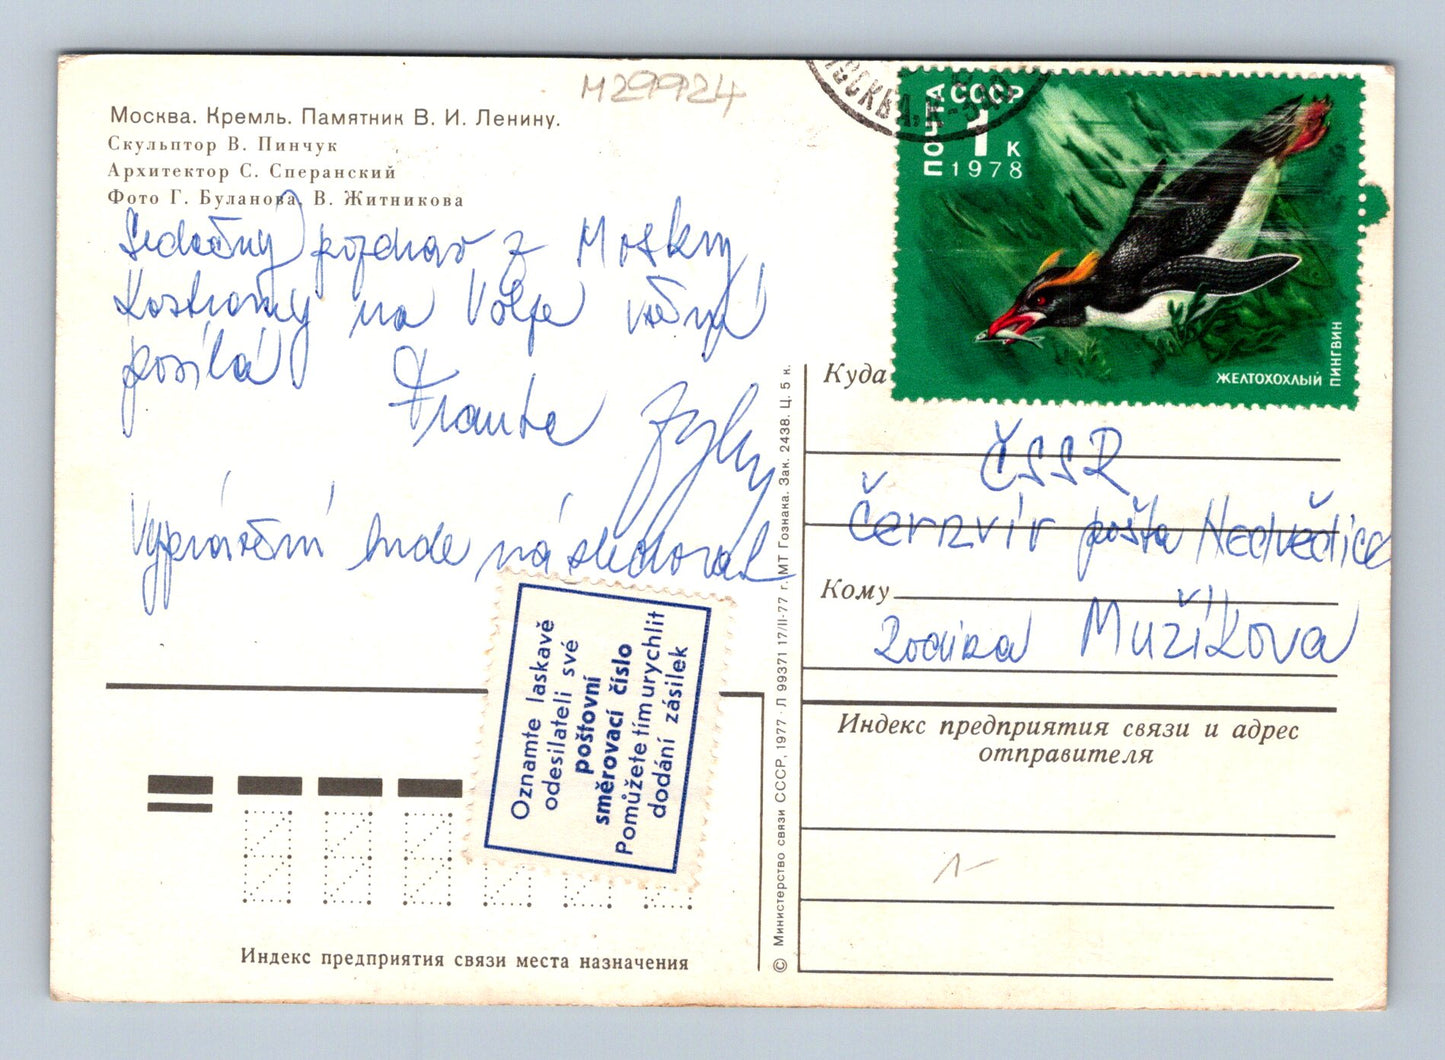 М29924
Москва. Кремль. Памятник В. И. Ленину.
Скульптор В. Пинчук
Архитектор С. Сперанский
Фото Г. Буланова, В. Житникова
Srdečný pozdrav z Moskvy
Kostromy na Volze všem
posílá
Franta
Vyprávění bude následovat
Oznamte laskavě
odesílateli své
poštovní
směrovací číslo
Pomůžete tím urychlit
dodání zásilek
Индекс предприятия связи места назначения
© Министерство связи СССР, 1977 · Л 99371 17/II-77 г. МТ Гознака. Зак. 2438. Ц. 5 к.
МОСКВА, К-9
ПОЧТА СССР
1 К
1978
ЖЕЛТОХОХЛЫЙ ПИНГВИН
Куда
ČSSR
Černvír pošta Nedvědice
Кому
Rodina Mužíkova
Индекс предприятия связи и адрес
отправителя
1-